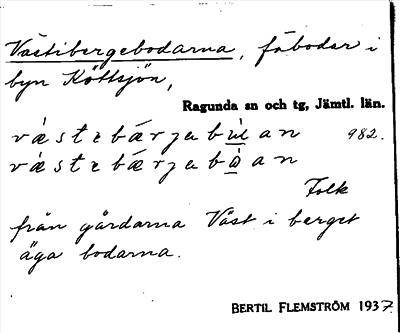 Västibergebodarna, fäbodar i
byn Köttsjön,
Ragunda sn och tg, Jämtl. län.
västebärjabùlan 982.
västebärjabòan
Folk
från gårdarna Väst i berget
äga bodarna.
BERTIL FLEMSTRÖM 1937